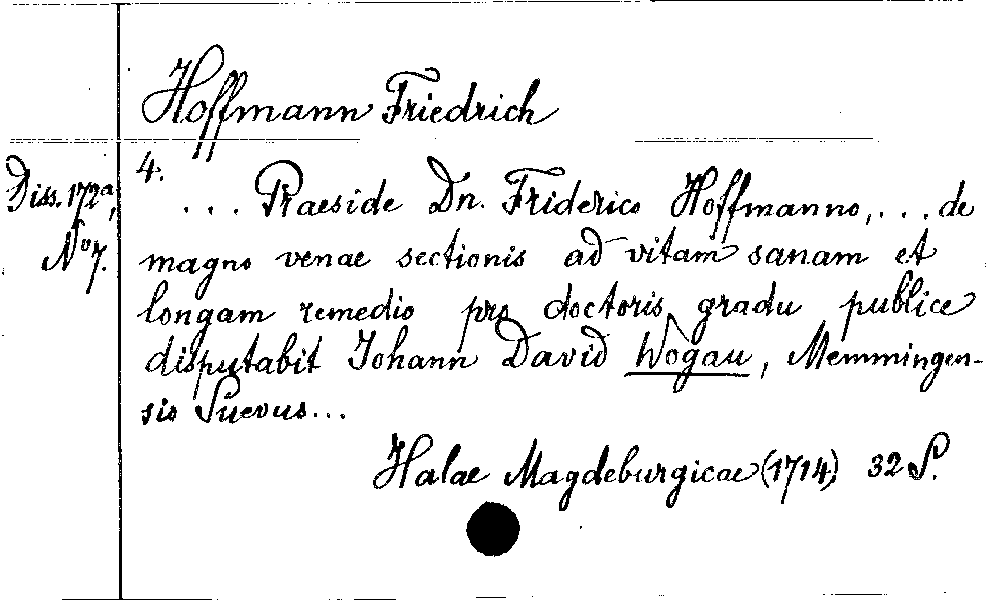 Hoffmann Friedrich
4.
Diss. 172a,
No 7.
... Praeside Dn. Friderico Hoffmanno, ... de
magno venae sectionis ad vitam sanam et
longam remedio pro doctoris gradu publice
disputabit Johann David Wogau, Memmingen-
sis Suevus...
Halae Magdeburgicae (1714) 32 S.